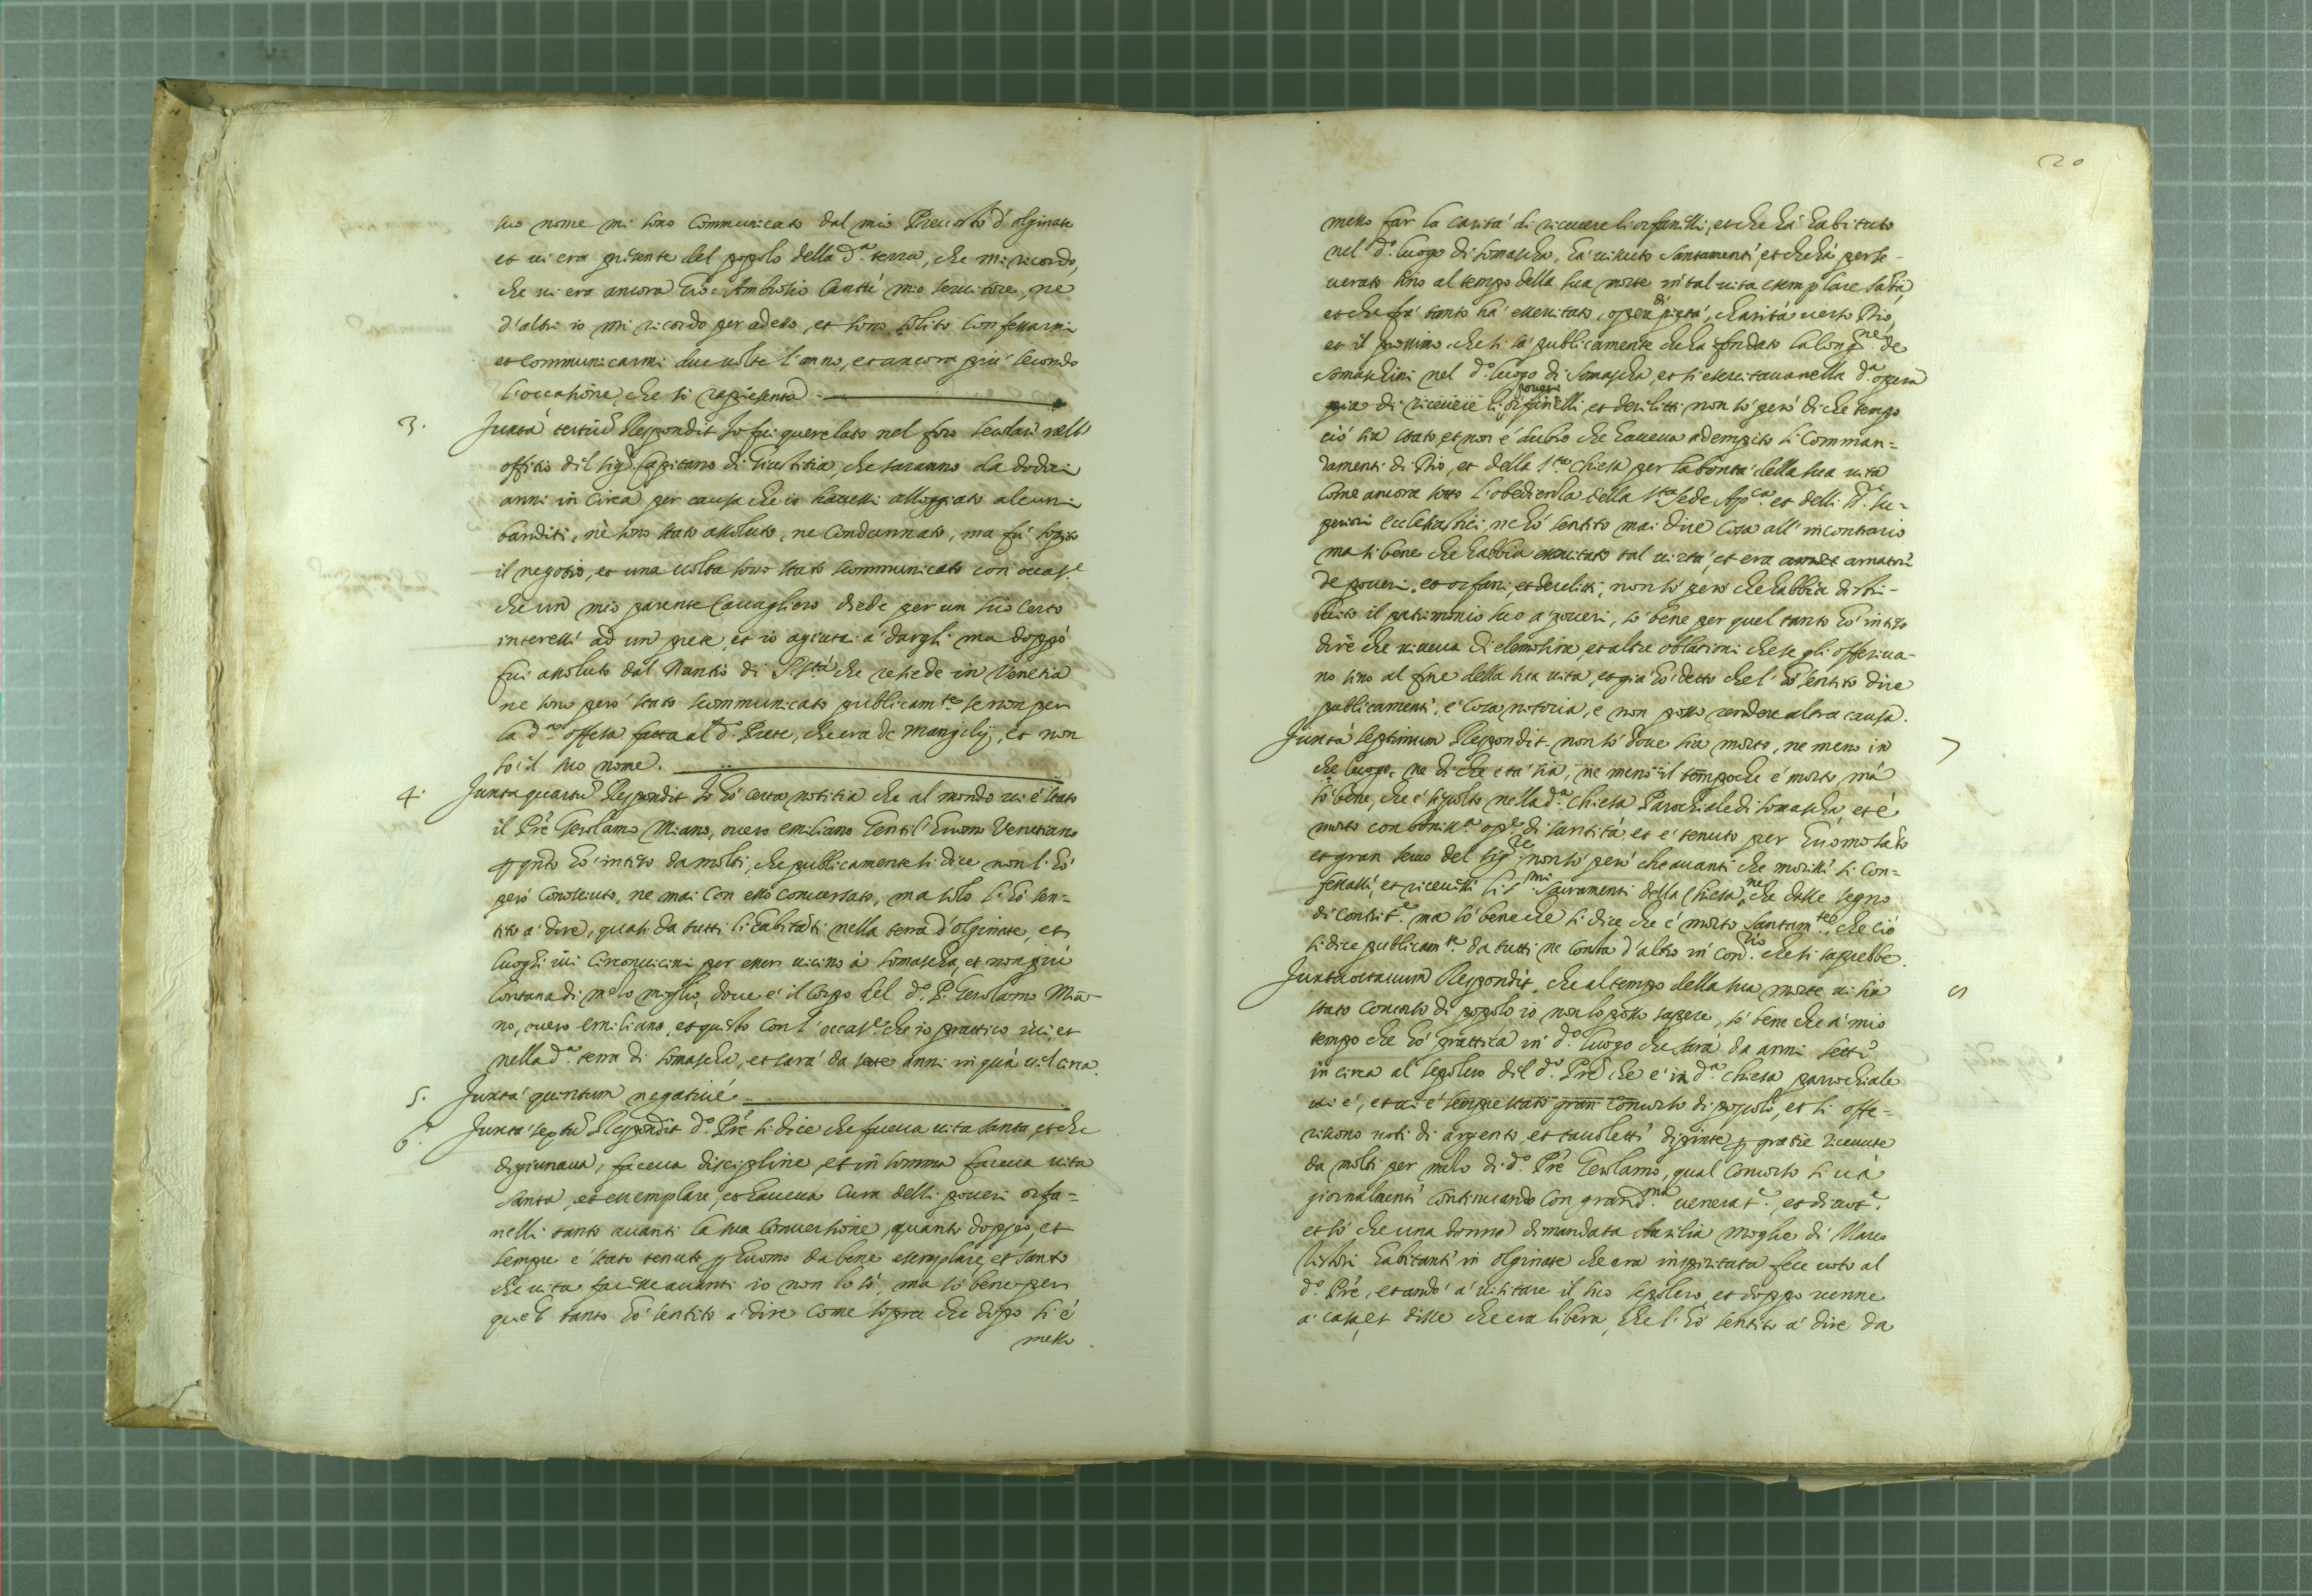 suo nome mi sono communicato dal mio Prevosto d'olginate
et ui era presente del popolo della d.ª terra, che mi ricordo,
che ui era ancora Gio: Ambrosio Cantù mio seruitore, ne
d'altri io mi ricordo per adesso, et sono solito confessarmi
et communicarmi due uolte l'anno, et ancora più secondo
l'occasione che si rapresenta.
3. Juxta tertiũ Respondit Io fui querelato nel foro secolare nell'
offitio dil sig.r Capitano di Giustitia, che saranno da dodeci
anni in circa per causa che io hauessi alloggiato alcuni
banditi, nè sono stato assoluto, ne condannato, ma fù sopito
il negotio, et una uolta sono stato scommunicato con occas.e
che un mio parente Cauagliero diede per un suo certo
interesse ad un prete, et io agiutai a dargli ma doppò
fui assoluto dal Nuntio di S. Stà che resiede in Venetia
ne sono però stato scommunicato publicam.te se non per
la d.ª offesa fatta al d.º Prete, che era de Mangilij, et non
so il suo nome.
4. Juxta quartũ Respondit Io hò certa notitia che al mondo ui è stato
il Prè Gerolamo Miano, ouero emiliano Gentil'huomo Venetiano
p q.nto hò inteso da molti, che publicamente si dice non l'hò
però conosciuto, ne mai con esso conuersato, ma solo l'hò sen=
tito a' dire, quasi da tutti li habitãti nella terra d'olginate, et
luoghi iui circonuicini per esser uicino à somascha, et non più
lontana di mezo miglio, doue è il Corpo del d.º P. Gerolamo Mia-
no, ouero emiliano, et questo con l'occas.e che io prattico iui, et
nella d.ª terra di somascha, et sarà da sette anni in quà uel circa.
5. Juxta quintum negatiué.
6. Juxta sextũ Respondit d.º Prè si dice che faceua uita santa, et che
digiunaua, faceua discipline, et in somma faceua uita
santa, et essemplare, et haueua cura delli poueri orfa=
nelli tanto auanti la sua conuersione, quanto doppo, et
sempre è stato tenuto p huomo da bene esemplare, et santo
che uita facesse auanti io non lo sò, ma sò bene per
quel tanto hò sentito a dire come sopra che dopo si è
messo
20
messo far la carità di riceuere li orfanelli, et che hà habitato
nel d.º luogo di somascha, hà uiuuto santamente, et che hà perse-
uerato sino al tempo della sua morte in tal uita esemplare santa
et che frà tanto hà essercitato opere di pietà, charità uerso Dio,
et il prossimo che si sà publicamente che ha fondato la long.ne de
somaschini nel d.º luogo di Somascha, et si esercitaua nella d.ª opera
pia di riceuere li poueri orfanelli, et derelitti non sò però di che tempo
ciò sia stato et non è dubio che haueua adempito li comman=
damenti di Dio, et della s.ta chiesa per la bontà della sua uita
come ancora sotto l'obedienza della s.ta sede Ap.ca et delli d.i su=
periori ecclesiastici, ne hò sentito mai dire cosa all'incontrario
ma si bene che habbia essercitato tal uirtù, et era amatore
de poueri, et orfani, et derelitti, non sò però che habbia distri-
buito il patrimonio suo a' poueri, sò bene per quel tanto hò inteso
dire che uiueua di elemosina, et altre oblationi che se gli offeriua-
no sino al fine della sua uita, et già hò detto che l'hò sentito dire
publicamente, è cosa notoria, e non posso rendere altra causa.
Juxta septimum Respondit non sò doue sia morto, ne meno in 7
che luogo, ne di che età sia, ne meno il tempo che è morto mà
sò bene, che è sepolto nella d.ª chiesa Parochiale di somascha, et è
morto con boniss.ª op.e di santità et è tenuto per huomo santo
et gran seruo del sig.re non sò però che auanti che morisse si con=
fessasse, et riceuesse li s.mi Sacramenti della chiesa, ne che desse segno
di contrit.e ma sò bene che si dice che è morto santam.te, che ciò
si dice publicam.te da tutti ne consta d'altro in con.rio che si saprebbe.
Juxta octauum Respondit, che al tempo della sua morte ui sia 8
stato concorso di popolo io non lo posso sapere, sò bene che a' mio
tempo che hò prattica in d.º luogo che sarà da anni sette
in circa al sepolcro dil d.º Prè che è in d.ª chiesa parrochiale
ui è, et ui è sempre stato gran concorso di popolo, et si offe=
riscono uoti di argento, et tauolette dipinte p gratie riceuute
da molti per mezo di d.º Prè Gerolamo, qual concorso si uà
giornalmente continuando con grand.ma uenerat.e, et diuot.e
et sò che una donna dimandata Aurilia moglie di Marco
habitante in olginate che era inspiritata fece uoto al
d.º Prè, et andò a' uisitare il suo sepolcro, et doppo uenne
a' casa, et disse che era libera, che l'hò sentito a' dire da